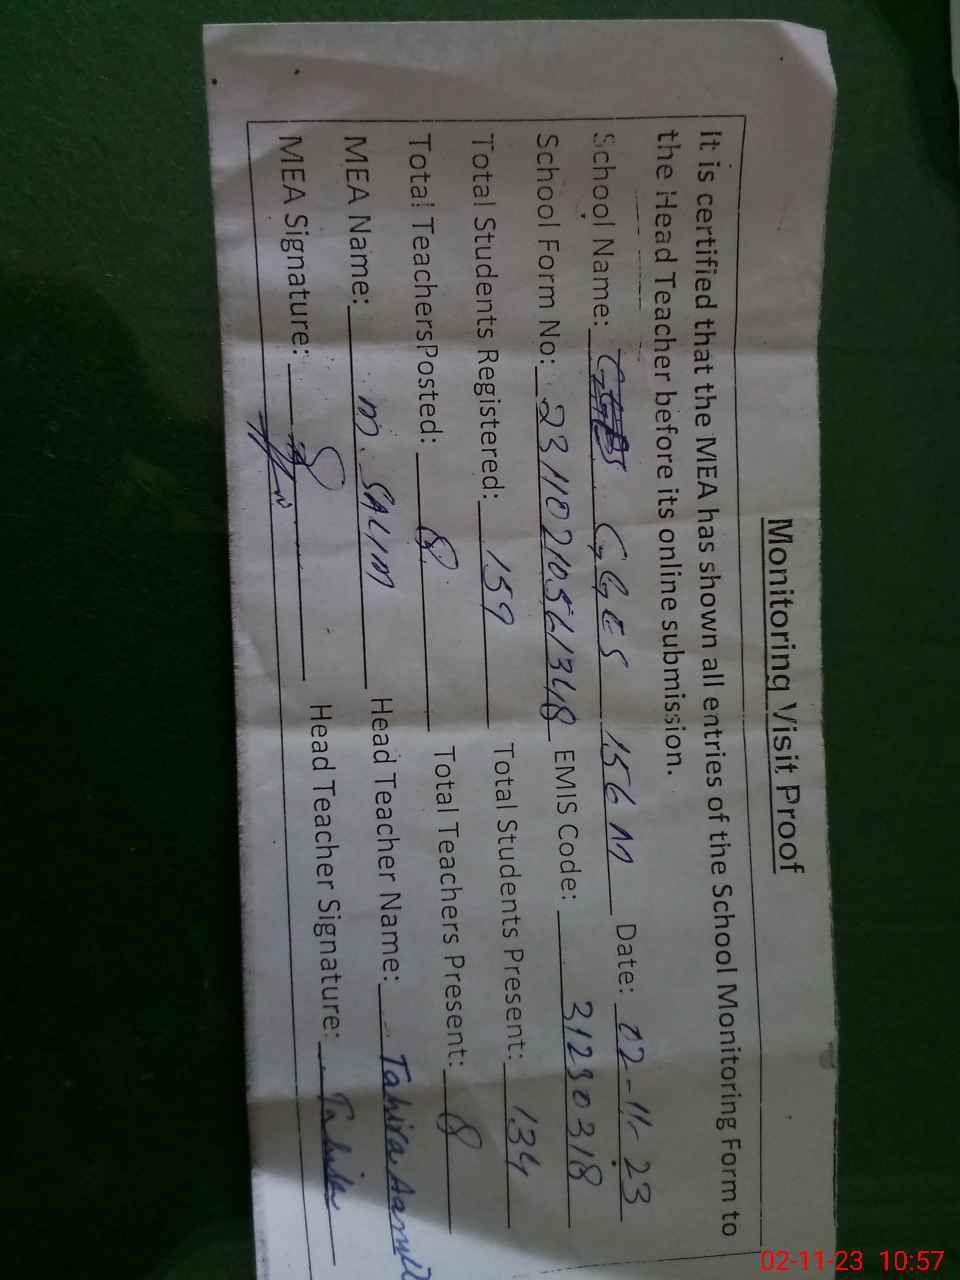 Monitoring Visit Proof
It is certified that the MEA has shown all entries of the School Monitoring Form to
the Head Teacher before its online submission.
School Name: GGES 156 M Date: 02-11-23
School Form No: EMIS Code: 31230318
Total Students Registered: 159 Total Students Present: 134
Total TeachersPosted: 8 Total Teachers Present: 8
MEA Name: M. SALIM Head Teacher Name: Tahira
MEA Signature: Head Teacher Signature: Tahira
02-11-23 10:57